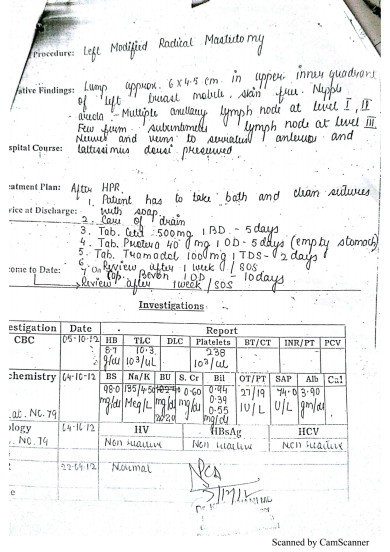 Procedure: Left Modified Radical Mastectomy
ative Findings: Lump approx. 6 x 4.5 cm in upper inner quadrant
of left breast mobile, skin free. Nipple
areola - Multiple axillary lymph node at level I, II
Few firm subcentimetre lymph node at level III
Nerves and veins to serratus anterior and
spital Course: lattissimus dorsi preserved
eatment Plan: After HPR
1. Patient has to take bath and clean sutures
vice at Discharge: with soap
2. Care of drain
3. Tab. 500mg 1 BD - 5 days
4. Tab. 40 mg 1 OD - 5 days (empty stomach)
5. Tab. Tramadol 100mg 1 TDS - 2 days
come to Date: Review after 1 week / SOS
1 OD - 10 days
Review after 1 week / SOS
Investigations
estigation Date Report
CBC 05-10-12 HB TLC DLC Platelets BT/CT INR/PT PCV
8.7 10.3 238
g/dl 10³/ul 10³/ul
chemistry 04-10-12 BS Na/K BU S. Cr Bil OT/PT SAP Alb Cal
98.0 135/4.50 0.60 0.94 27/19 74.0 3.90
mg/dl Meq/L mg/dl mg/dl 0.39 IU/L U/L gm/dl
0.55
20.20 mg/dl
at. NO. 79
ology 04-10-12 HV HBsAg HCV
. NO. 79 Non reactive Non reactive Non reactive
22-09-12 Normal
Scanned by CamScanner